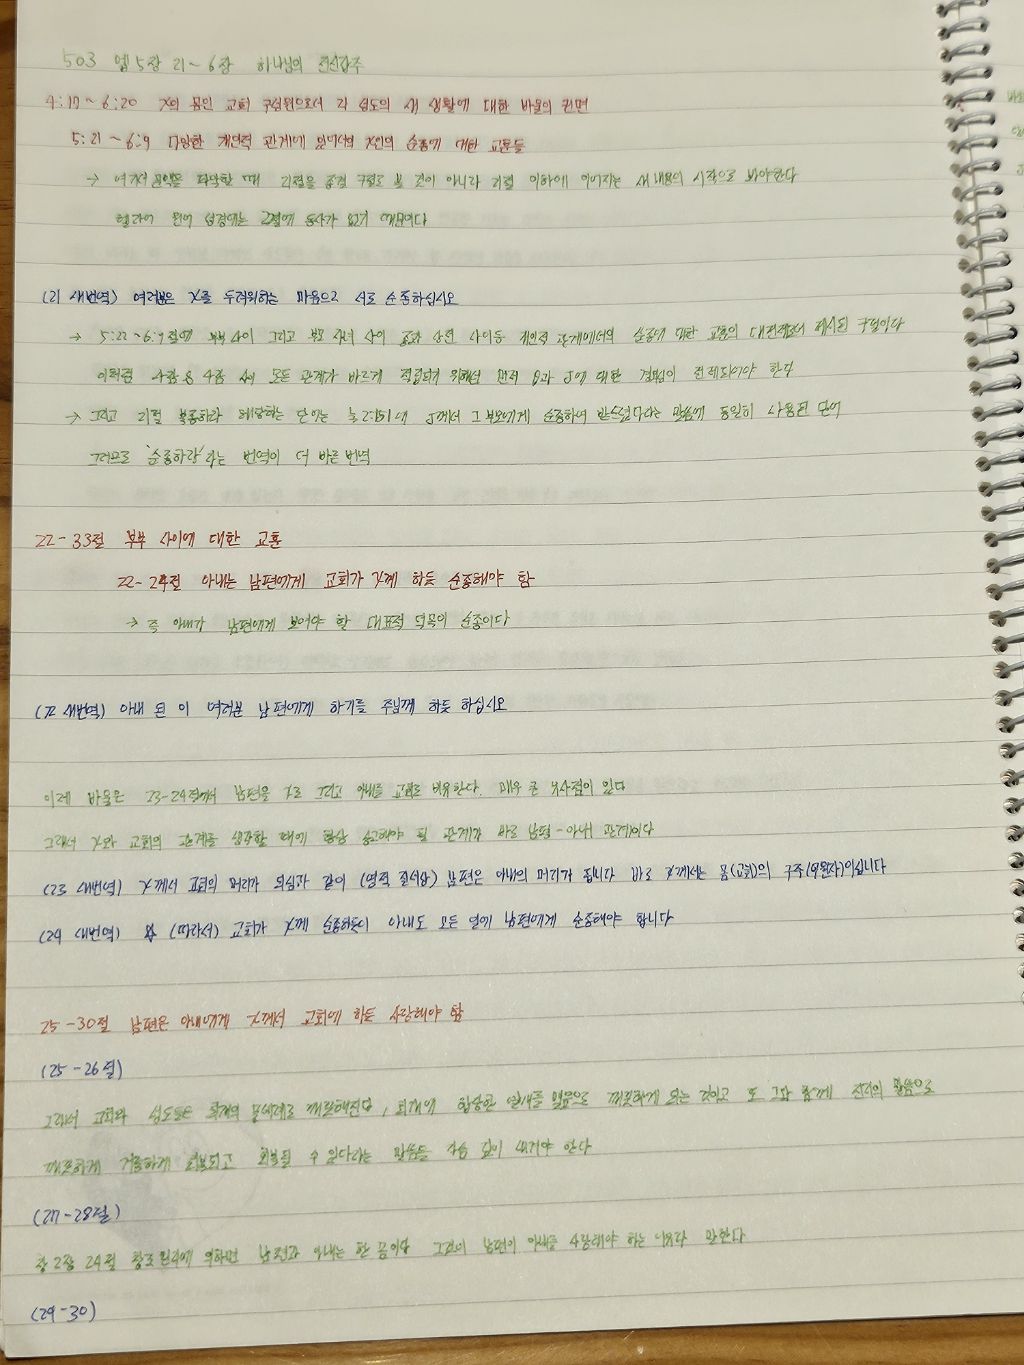 503 엡 5장 21~6장 하나님의 전신갑주
4:17~6:20 X의 몸인 교회 구성원으로서 각 성도의 새 생활에 대한 바울의 권면
5:21~6:9 다양한 개인적 관계에 있어서의 X인의 순종에 대한 교훈들
→ 여기서 문맥을 파악할 때 21절을 종결 구절로 볼 것이 아니라 21절 이하에 이어지는 새 내용의 시작으로 봐야한다
헬라어 원어 성경에는 22절에 동사가 없기 때문이다
(21 새번역) 여러분은 X를 두려워하는 마음으로 서로 순종하십시오
→ 5:22~6:9절에 부부 사이 그리고 부모 자녀 사이 종과 상전 사이등 개인적 관계에서의 순종에 대한 교훈의 대전제로서 제시된 구절이다
이처럼 사람 & 사람 사이 모든 관계가 바르게 정립되기 위해선 먼저 G과 J에 대한 경외심이 전제되어야 한다
→ 그리고 21절 복종하라 해당하는 단어는 눅 2:51에 J께서 그 부모에게 순종하여 받드셨더라는 말씀에 동일히 사용된 단어
그러므로 '순종하라'라는 번역이 더 바른 번역
22-33절 부부 사이에 대한 교훈
22-24절 아내는 남편에게 교회가 X께 하듯 순종해야 함
→ 즉 아내가 남편에게 보여야 할 대표적 덕목이 순종이다
(22 새번역) 아내 된 이 여러분 남편에게 하기를 주님께 하듯 하십시오
이제 바울은 23-24절에서 남편을 X로 그리고 아내를 교회로 비유한다. 매우 큰 유사점이 있다
그래서 X와 교회의 관계를 생각할 때에 항상 숙고해야 될 관계가 바로 남편-아내 관계이다
(23 새번역) X께서 교회의 머리가 되심과 같이 (영적 질서상) 남편은 아내의 머리가 됩니다 바로 X께서는 몸(교회)의 구주(구원자)이십니다
(24 새번역) (따라서) 교회가 X께 순종하듯이 아내도 모든 일에 남편에게 순종해야 합니다
25-30절 남편은 아내에게 X께서 교회에 하듯 사랑해야 함
(25-26절)
그래서 교회와 성도들은 회개의 물세례로 깨끗해진다, 회개에 합당한 열매를 맺음으로 깨끗하게 되는 것이고 또 그와 함께 진리의 말씀으로
깨끗하게 거룩하게 회복되고 회복될 수 있다라는 말씀을 가슴 깊이 새겨야 한다
(27-28절)
창 2장 24절 창조 원리에 의하면 남편과 아내는 한 몸이다 그것이 남편이 아내를 사랑해야 하는 이유라 말한다
(29-30)